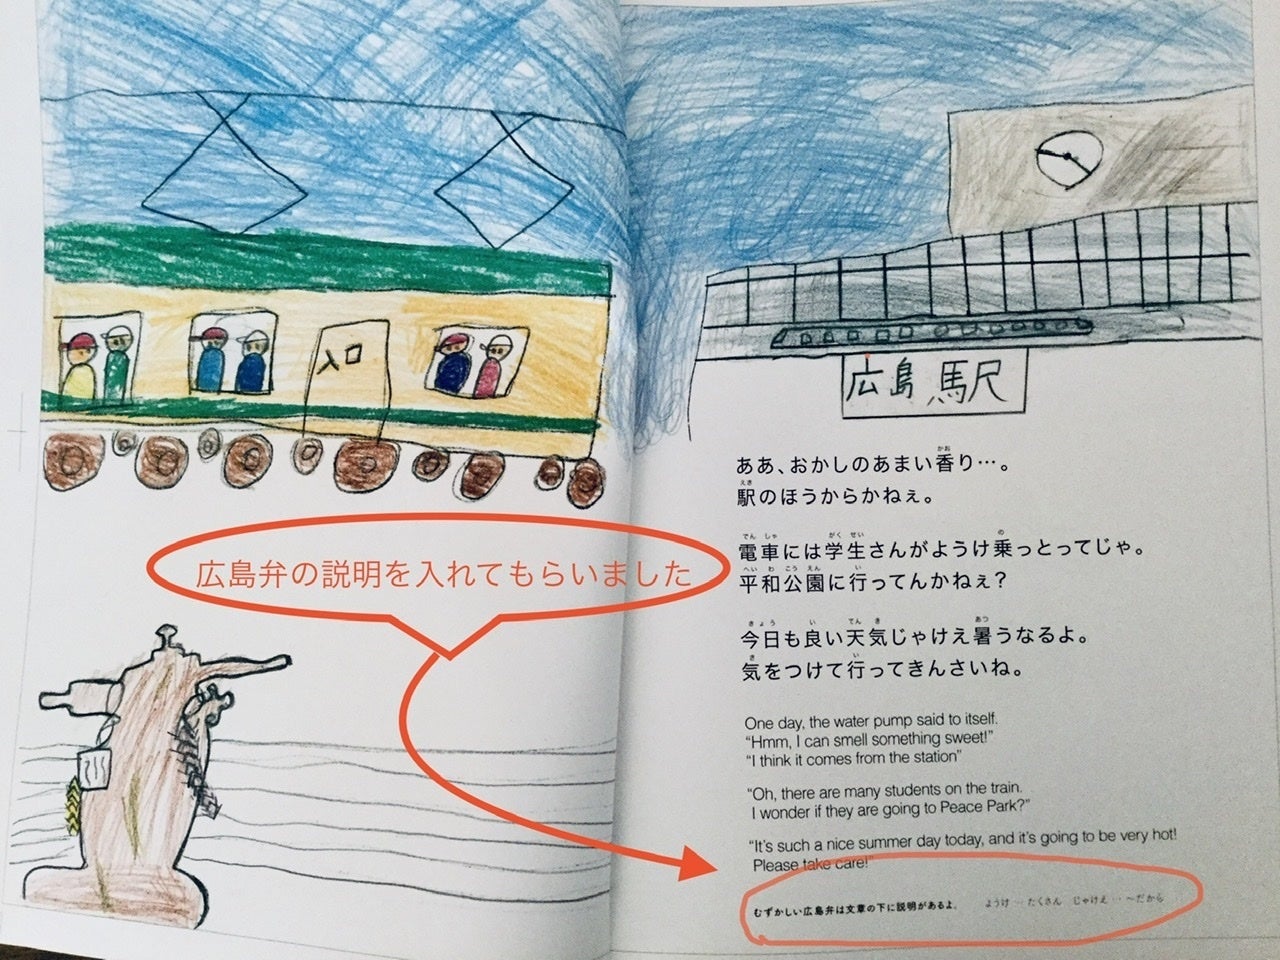 入口
広島駅
ああ、おかしのあまい香り…。
駅のほうからかねぇ。
電車には学生さんがようけ乗っとってじゃ。
平和公園に行ってんかねぇ?
今日も良い天気じゃけえ暑うなるよ。
気をつけて行ってきんさいね。
広島弁の説明を入れてもらいました
One day, the water pump said to itself.
“Hmm, I can smell something sweet!”
“I think it comes from the station”
“Oh, there are many students on the train.
I wonder if they are going to Peace Park?”
“It’s such a nice summer day today, and it’s going to be very hot!
Please take care!”
むずかしい広島弁は文章の下に説明があるよ。 ようけ…たくさん じゃけえ…〜だから